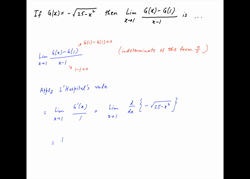 If G(x) = -√25-x² then Lim x→1 G(x)-G(1) / x-1 is ...
G(1)-G(1)=0
Lim x→1 G(x)-G(1) / x-1 (indeterminate of the form 0/0)
1-1=0
Apply L'Hospital's rule
= Lim x→1 G'(x) / 1 = Lim x→1 d/dx {-√25-x²}
=